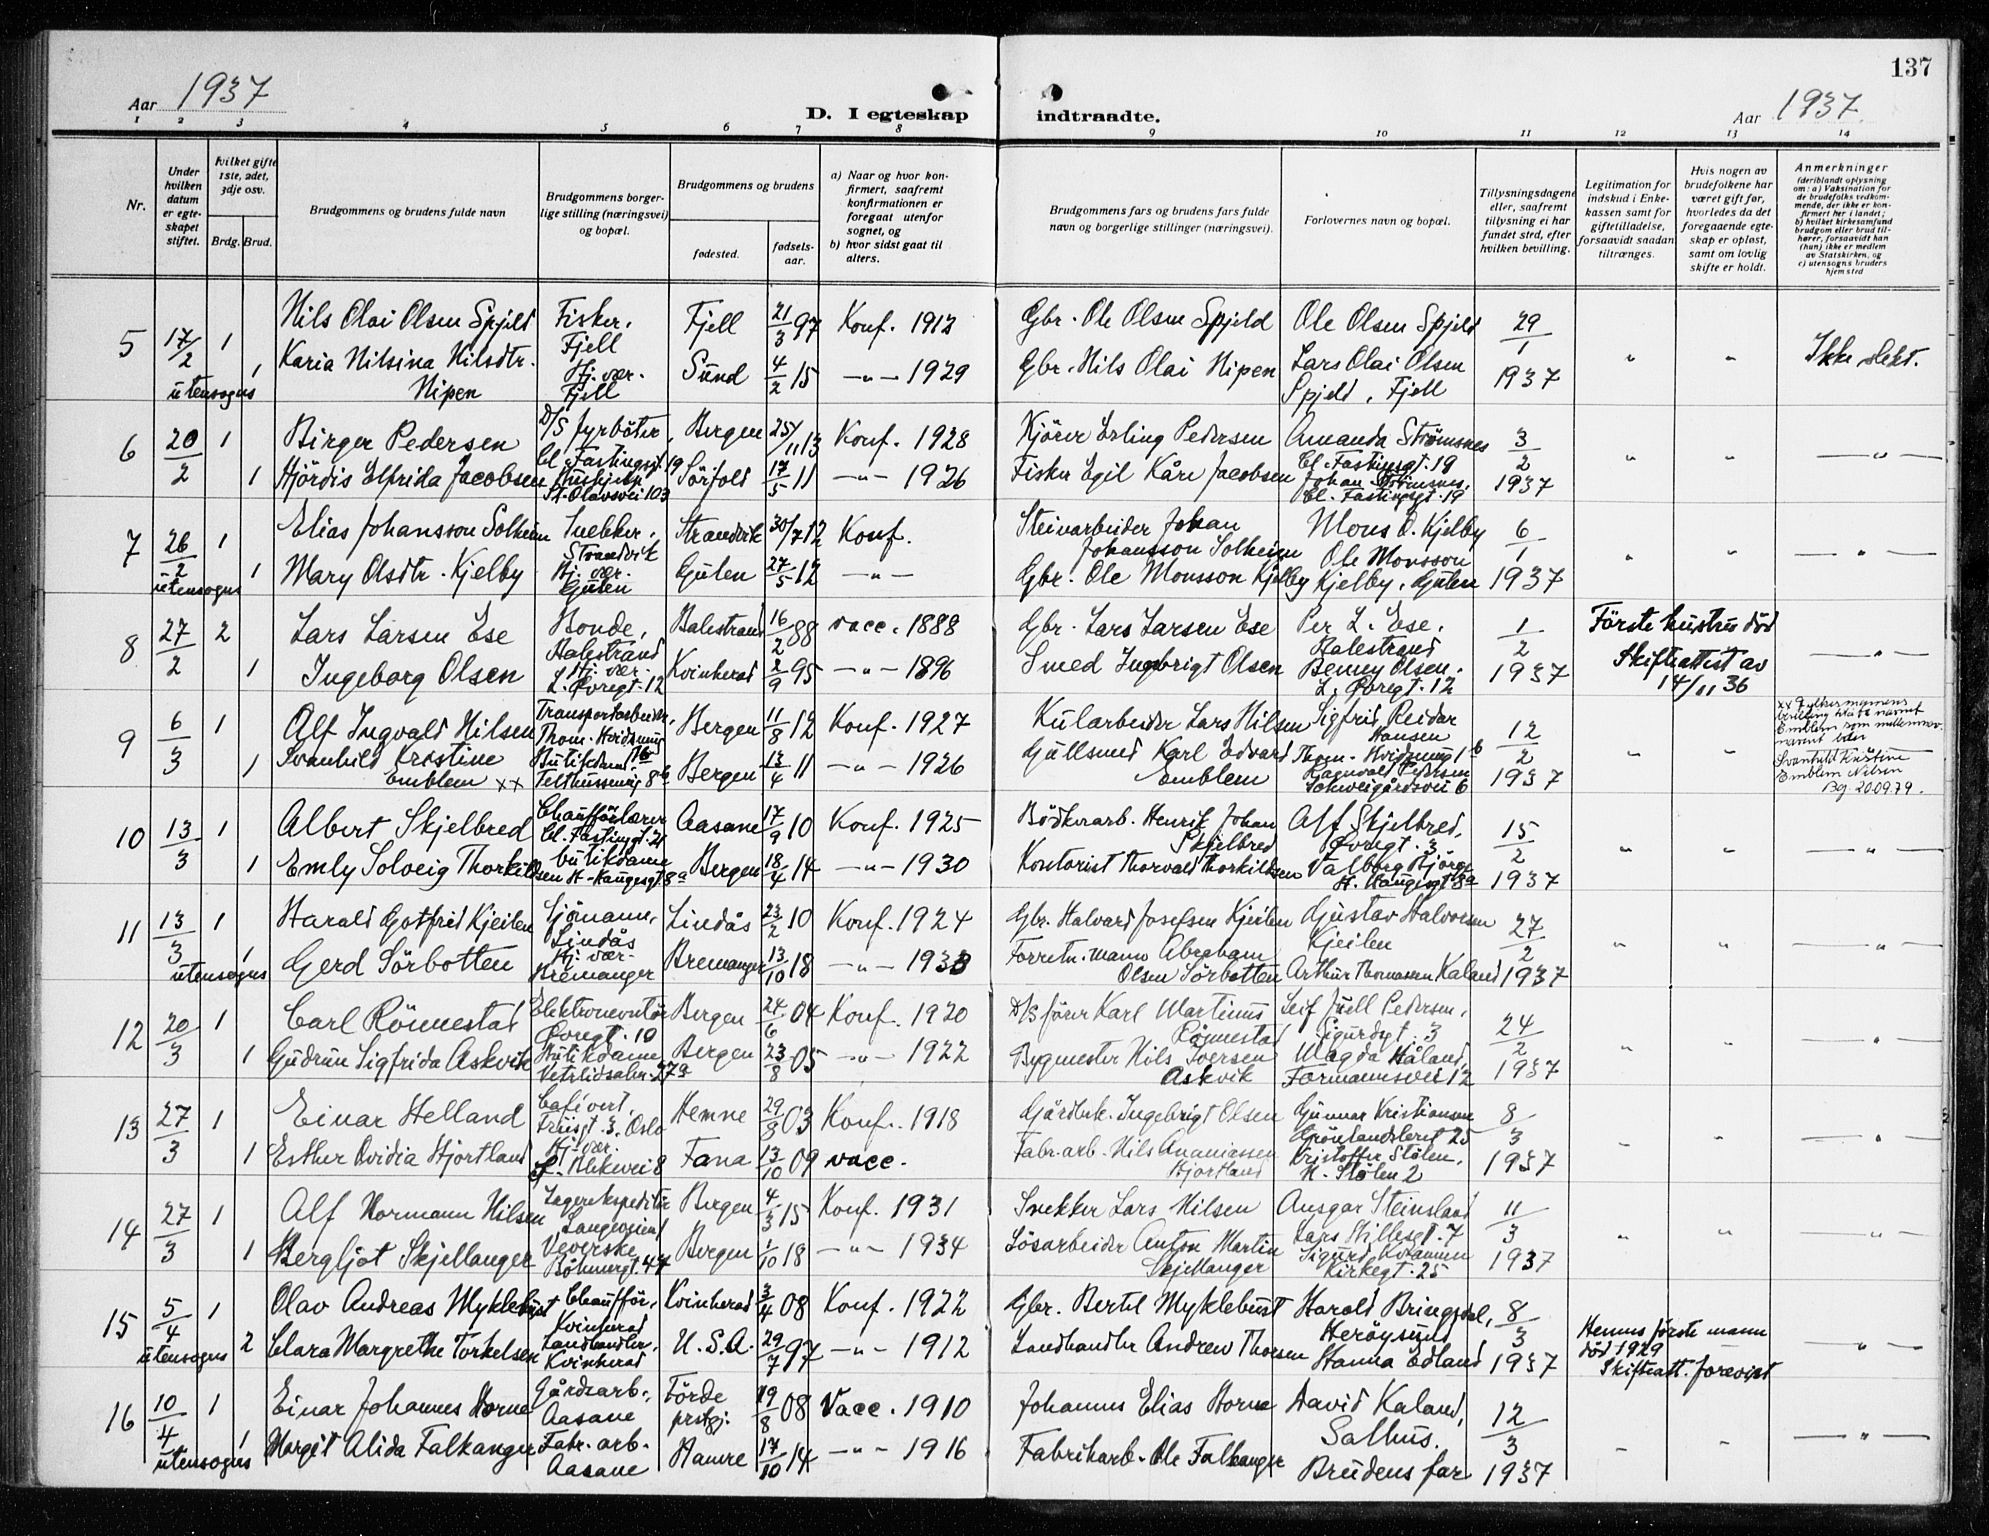 137
Aar 1937
D. I egteskap indtraadte.
Aar 1937.
1 2 3 4 5 6 7 8 9 10 11 12 13 14
Nr.
Under hvilken datum er egteskapet stiftet.
hvilket gifte 1ste, 2det, 3dje osv.
Brdg. Brud.
Brudgommens og brudens fulde navn
Brudgommens borgerlige stilling (næringsvei) og bopæl.
Brudgommens og brudens
fødested.
fødselsaar.
a) Naar og hvor konfirmert, saafremt konfirmationen er foregaat utenfor sognet, og
b) hvor sidst gaat til alters.
Brudgommens fars og brudens fars fulde navn og borgerlige stillinger (næringsvei).
Forlovernes navn og bopæl.
Tillysningsdagene eller, saafremt tillysning ei har fundet sted, efter hvilken bevilling.
Legitimation for indskud i Enkekassen samt for giftetilladelse, forsaavidt saadan tiltrænges.
Hvis nogen av brudefolkene har været gift før, hvorledes da det foregaaende egteskap er opløst, samt om lovlig skifte er holdt.
Anmerkninger
(deriblandt oplysning om: a) Vaksination for de brudefolks vedkommende, der ikke er konfirmert her i landet; b) hvilket kirkesamfund brudgom eller brud tilhører, forsaavidt han (hun) ikke er medlem av Statskirken, og c) utensogns bruders hjemsted
5 17/2 1 Nils Olai Olsen Spjeld Fisker, Fjell Fjell 21/3 97 Konf. 1912 Gbr. Ole Olsen Spjeld Ole Olsen Spjeld 29/1 1937 " " Ikke slekt.
utensogns 1 Karia Nilsina Nilsdtr. Nipen Hj. vær. Fjell Sund 4/2 15 -"- 1929 Gbr. Nils Olai Nipen Lars Olai Olsen Spjeld, Fjell
6 20/2 1 Birger Pedersen D/S fyrböter, Cl. Fastingsgt. 19 Bergen 25/11 13 Konf. 1928 Kjörer Erling Pedersen Amanda Strömsnes Cl. Fastingsgt. 19 3/2 1937 " " -"-
1 Hjördis Elfrida Jacobsen Hushjelp St. Olavsvei 103 Sörfold 17/5 11 -"- 1926 Fisker Egil Kåre Jacobsen Johan Strömsnes, Cl. Fastingsgt. 19
7 26/2 1 Elias Johansson Solheim Snekker, Strandvik Strandvik 30/7 12 Konf. Steinarbeider Johan Johansson Solheim Mons O. Kjelby 6/1 1937 " " -"-
utensogns 1 Mary Olsdtr. Kjelby Hj. vær. Gulen Gulen 27/5 12 -"- Gbr. Ole Monsson Kjelby Ole Monsson Kjelby, Gulen
8 27/2 2 Lars Larsen Ese Bonde, Balestrand Balestrand 16/2 88 vacc. 1888 Gbr. Lars Larsen Ese Per L. Ese, Balestrand 1/2 1937 Förste hustru död -"-
1 Ingeborg Olsen Hj. vær. L. Øvregt. 12 Kvinherad 2/9 95 -"- 1896 Smed Ingebrigt Olsen Benny Olsen, L. Øvregt. 12 Skifteattest av 14/11 36
9 6/3 1 Alf Ingvald Nilsen Transportarbeider, Bergen 11/8 12 Konf. 1927 Kularbeider Lars Nilsen Sigfrid Reidar Hansen 12/2 1937 " "
1 Svanhild Kristine Emblem xx Butikdame Bergen 13/4 11 -"- 1926 Gullsmed Karl Edvard Emblem Ragnvald Pedersen Schweigårdsvei 6
Svanhild Kristine Emblem Nilsen
Bg. 20.09.79.
10 13/3 1 Albert Skjelbred Chaufförlærer Cl. Fastingsgt. 21 Aasane 17/9 10 Konf. 1925 Bödkerarb. Henrik Johan Skjelbred Alf Skjelbred, Øvregt. 3 15/2 1937 " " -"-
1 Emly Solveig Thorkildsen butikdame H. Haugesgt. 8a Bergen 18/4 14 -"- 1930 Kontorist Thorvald Thorkildsen Valborg
11 13/3 1 Harald Gotfred Kjeilen Sjömann, Lindås Lindås 23/2 10 Konf. 1924 Gbr. Halvard Josefsen Kjeilen Gustav Halvorsen Kjeilen 27/2 1937 " " -"-
utensogns 1 Gerd Sörbotten Hj. vær. Bremanger Bremanger 13/10 18 -"- 1933 Forretn. mann Abraham Olsen Sörbotten Arthur Thomassen Kaland
12 20/3 1 Carl Rönnestad Elektromontör Øvregt. 10 Bergen 24/6 04 Konf. 1920 D/S förer Karl Martinus Rönnestad Leif Juell Pedersen, Sigurdsgt. 3 24/2 1937 " " -"-
1 Gudrun Sigfrida Askvik Butikdame Vetrlidsalm. 27a Bergen 23/8 05 -"- 1922 Bygmester Nils Iversen Askvik Magda Håland, Formannsvei 12
13 27/3 1 Einar Helland Cafévert, Friisgt. 3, Oslo Hemne 29/8 03 Konf. 1918 Gårdbr. Ingebrigt Olsen Gunnar Kristiansen Grönlandsleret 25 8/3 1937 " " -"-
1 Esther Ovidia Hjortland Hj. vær. Blekevei 8 Fana 13/10 09 vacc. Fabr. arb. Nils Ananiassen Hjortland Kristoffer Stölen, N. Stölen 2
14 27/3 1 Alf Normann Nilsen Lagerekspeditör Bergen 4/3 15 Konf. 1931 Snekker Lars Nilsen Ansgar Steinsland Lars Hillesgt. 7 11/3 1937 " " "
1 Bergljot Skjellanger Veverske Böhmergt. 44 Bergen 1/10 18 -"- 1934 Lösarbeider Anton Martin Skjellanger Sigurd Kvammen Kirkegt. 25
15 5/4 1 Olav Andreas Myklebust Chaufför, Kvinherad Kvinherad 3/4 08 Konf. 1922 Gbr. Bertel Myklebust Harald Bringsdal, Herøysund 8/3 1937 Hennes förste mann död 1929 -"-
utensogns 2 Clara Margrethe Torkelsen Landhandler, Kvinherad U.S.A. 29/7 97 -"- 1912 Landhandler Andrew Thorsen Hanna Edland Skifteatt. forevist
16 10/4 1 Einar Johannes Horne Gårdsarb., Aasane Förde prstgj. 19/8 08 Vacc. 1910 Johannes Elias Horne David Kaland, Salhus. 12/3 1937 " " -"-
utensogns 1 Margit Alida Falkanger Fabr. arb. Aasane Hamre 17/10 14 -"- 1916 Fabrikarb. Ole Falkanger Brudens far